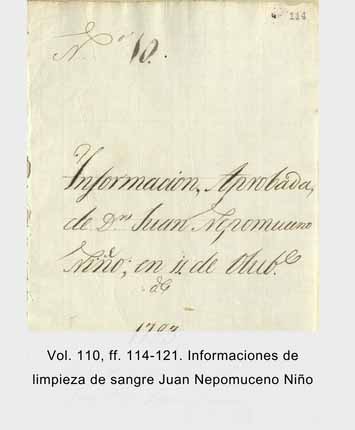 114
N.º 10.
Y
Informacion, Aprobada,
de D.n Juan Nepomuceno
Niño; en 11 de Octub.e
de
Vol. 110, ff. 114-121. Informaciones de
limpieza de sangre Juan Nepomuceno Niño